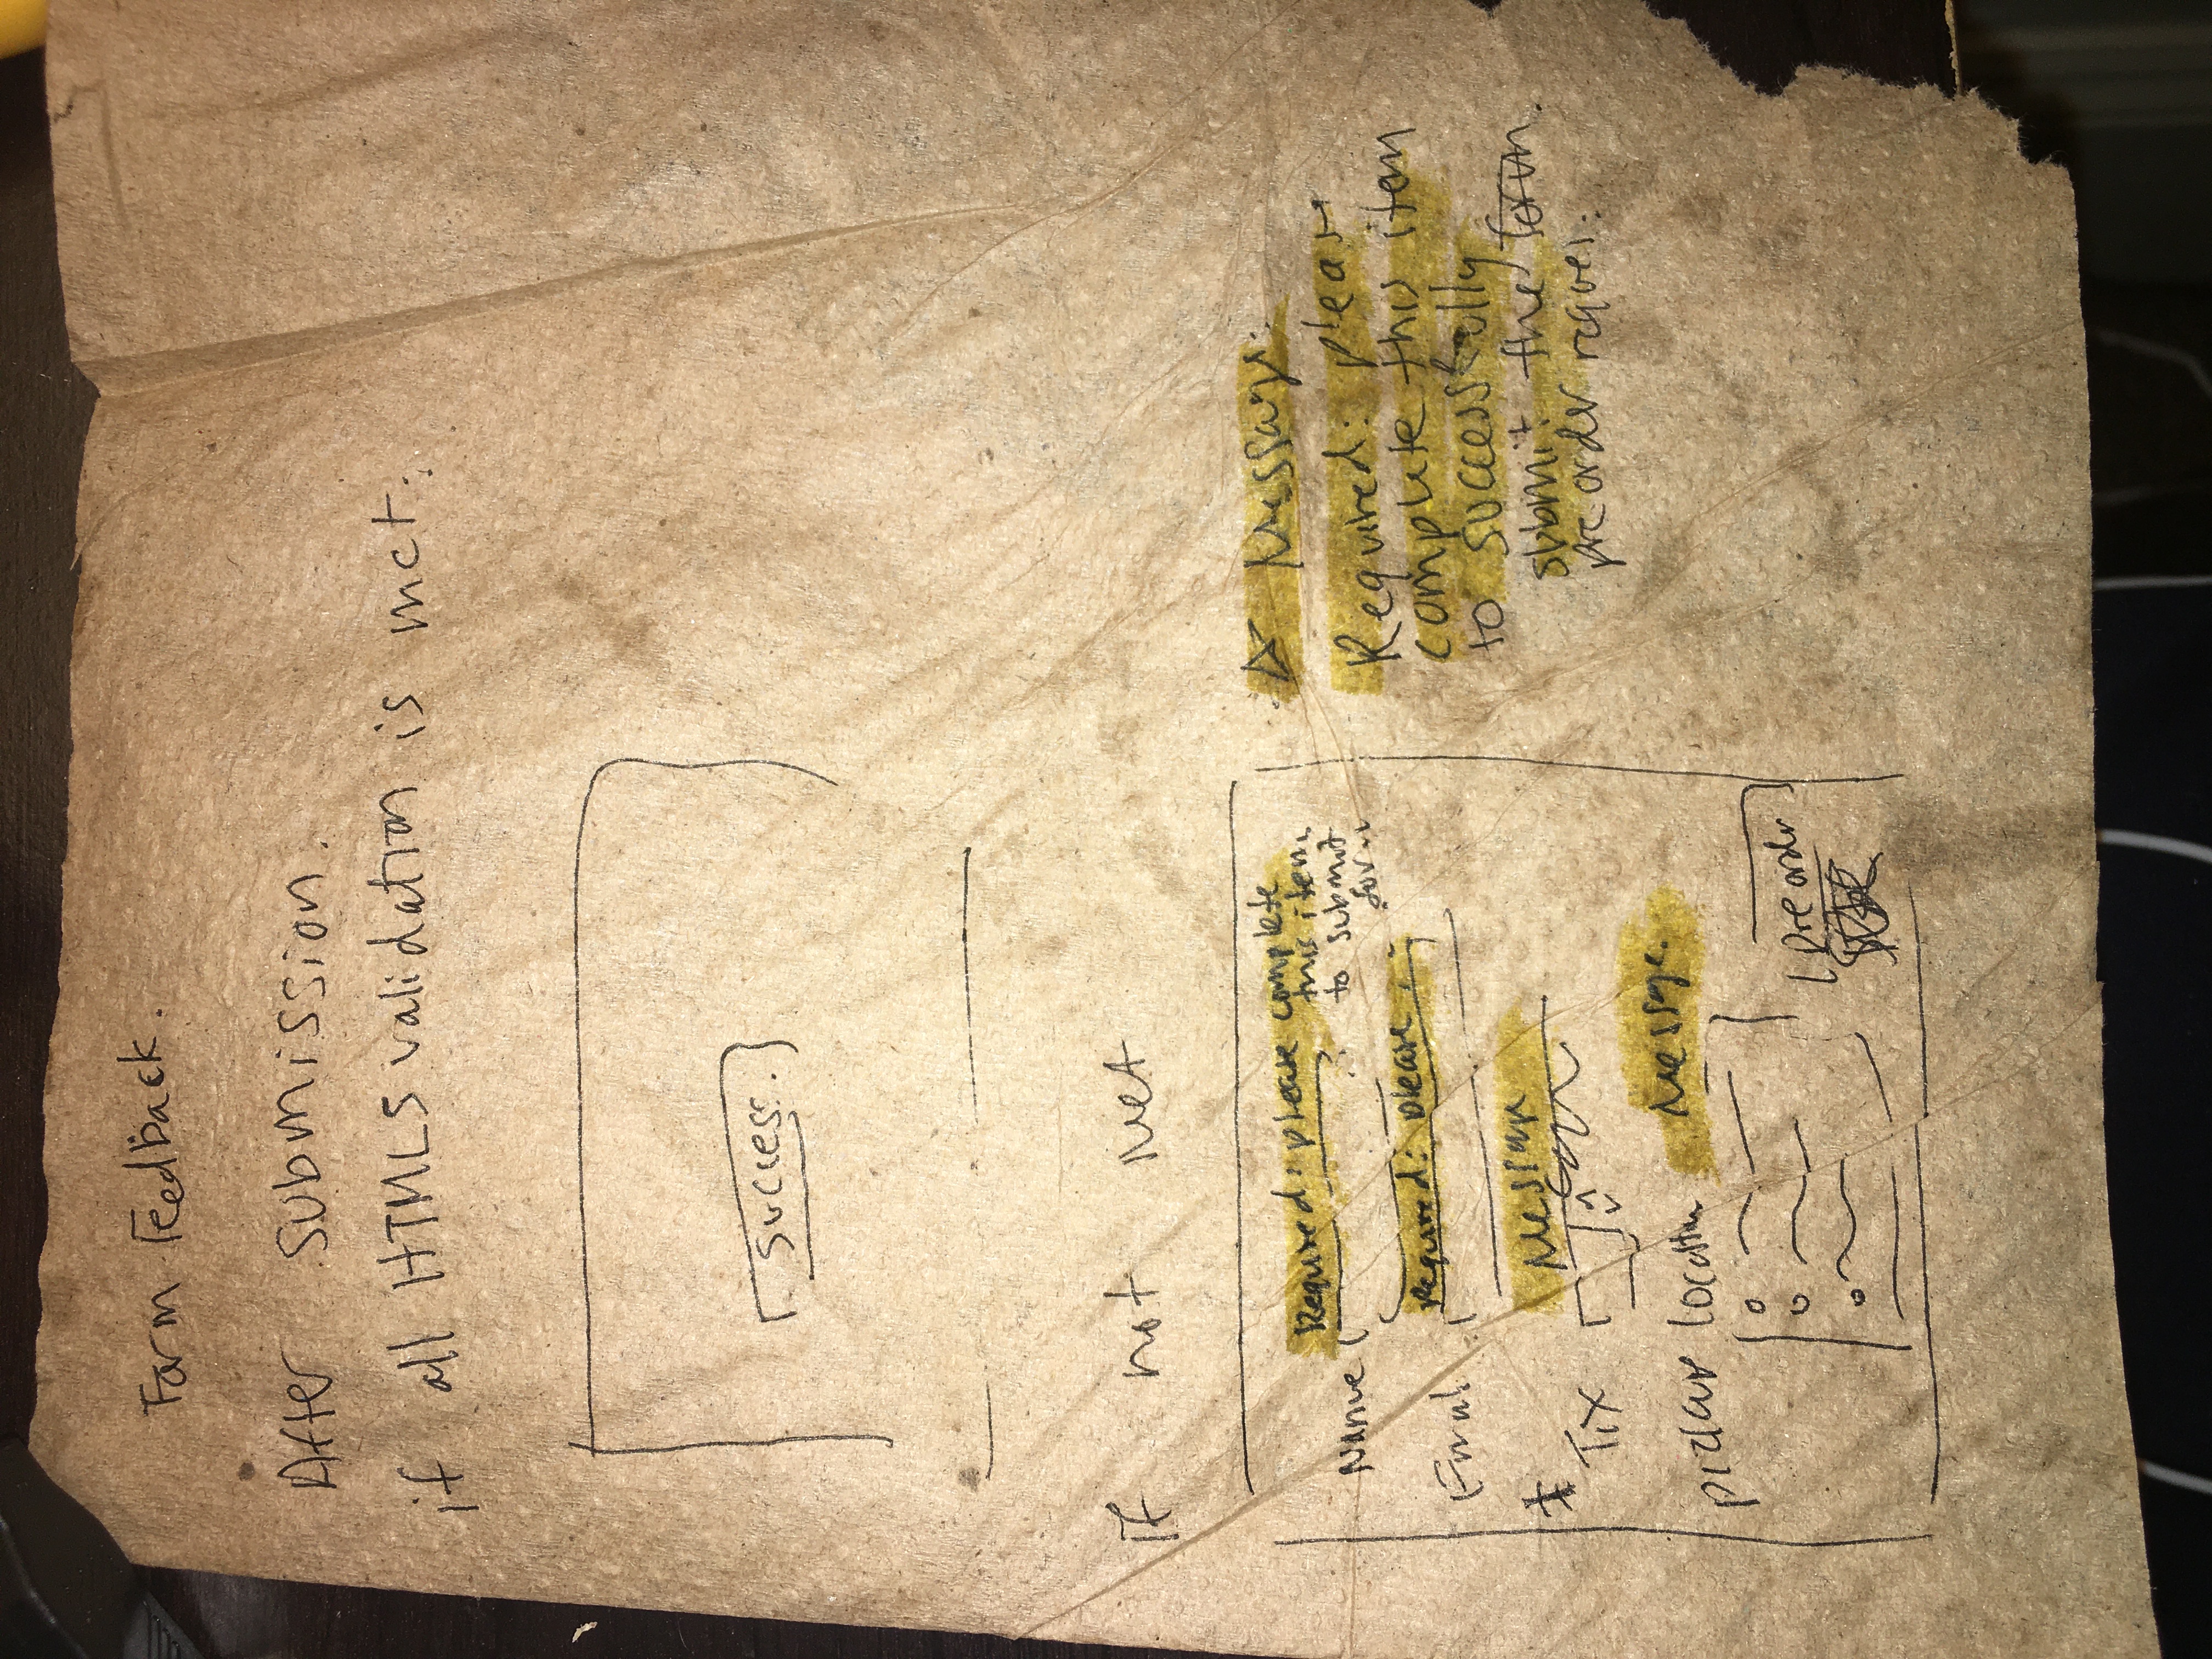 Form Feedback.
After submission.
if all HTML5 validation is met:
success.
If not Met
Required: please complete
this item
to submit
form
Name
Required: please . -
Email
Message
* Tix
Location
Message.
pre order
☆ Message:
Required: please
complete this item
to successfully
submit the form.
pre order reques.